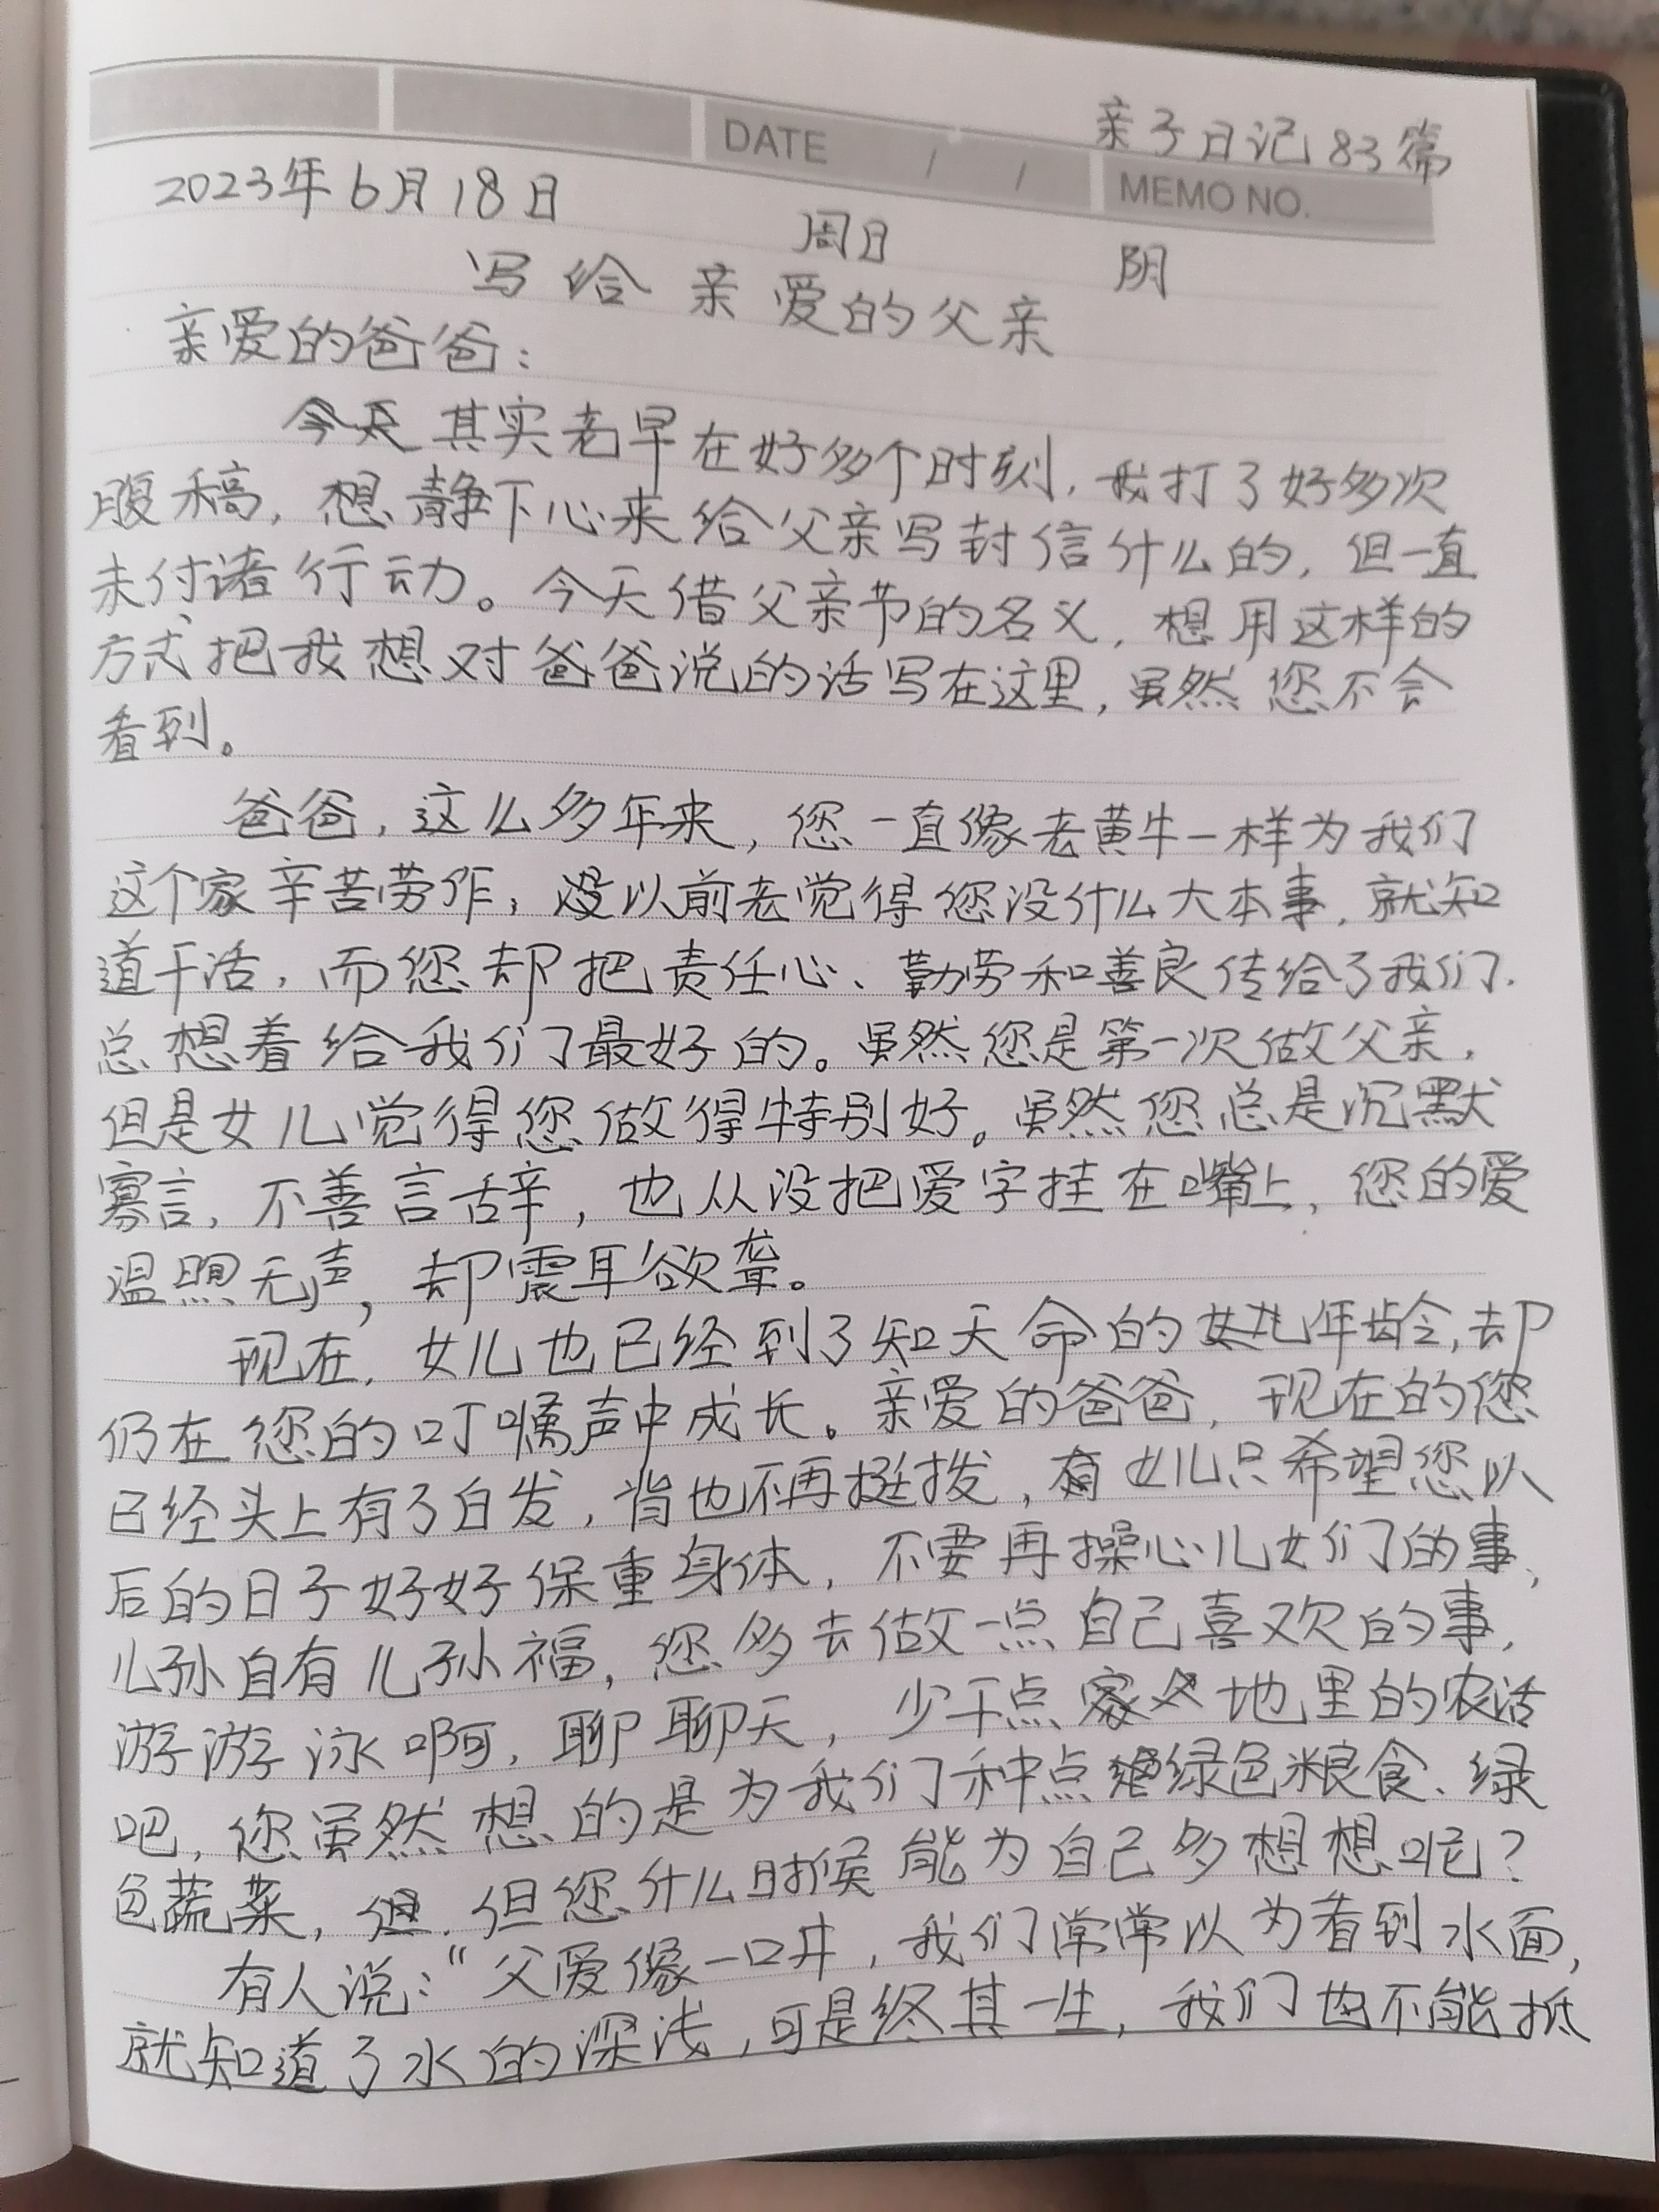 亲子日记83篇
DATE / /
MEMO NO.
2023年6月18日 周日 阴
写给亲爱的父亲
亲爱的爸爸:
今天其实老早在好多个时刻,我打了好多次
腹稿,想静下心来给父亲写封信什么的,但一直
未付诸行动。今天借父亲节的名义,想用这样的
方式把我想对爸爸说的话写在这里,虽然您不会
看到。
爸爸,这么多年来,您一直像老黄牛一样为我们
这个家辛苦劳作,没以前老觉得您没什么大本事,就知
道干活,而您却把责任心、勤劳和善良传给了我们.
总想着给我们最好的。虽然您是第一次做父亲,
但是女儿觉得您做得特别好。虽然您总是沉默
寡言,不善言辞,也从没把爱字挂在嘴上,您的爱
温照无声,却震耳欲聋。
现在,女儿也已经到了知天命的年龄,却
仍在您的叮嘱声中成长。亲爱的爸爸,现在的您
已经头上有了白发,背也不再挺拨,有女儿只希望您以
后的日子好好保重身体,不要再操心儿女们的事,
儿孙自有儿孙福,您多去做一点自己喜欢的事,
游游泳啊,聊聊天,少干点家地里的农活
吧,您虽然想的是为我们种点绿色粮食、绿
色蔬菜,但.但您什么时候能为自己多想想呢?
有人说:“父爱像一口井,我们常常以为看到水面,
就知道了水的深浅,可是终其一生,我们也不能抵